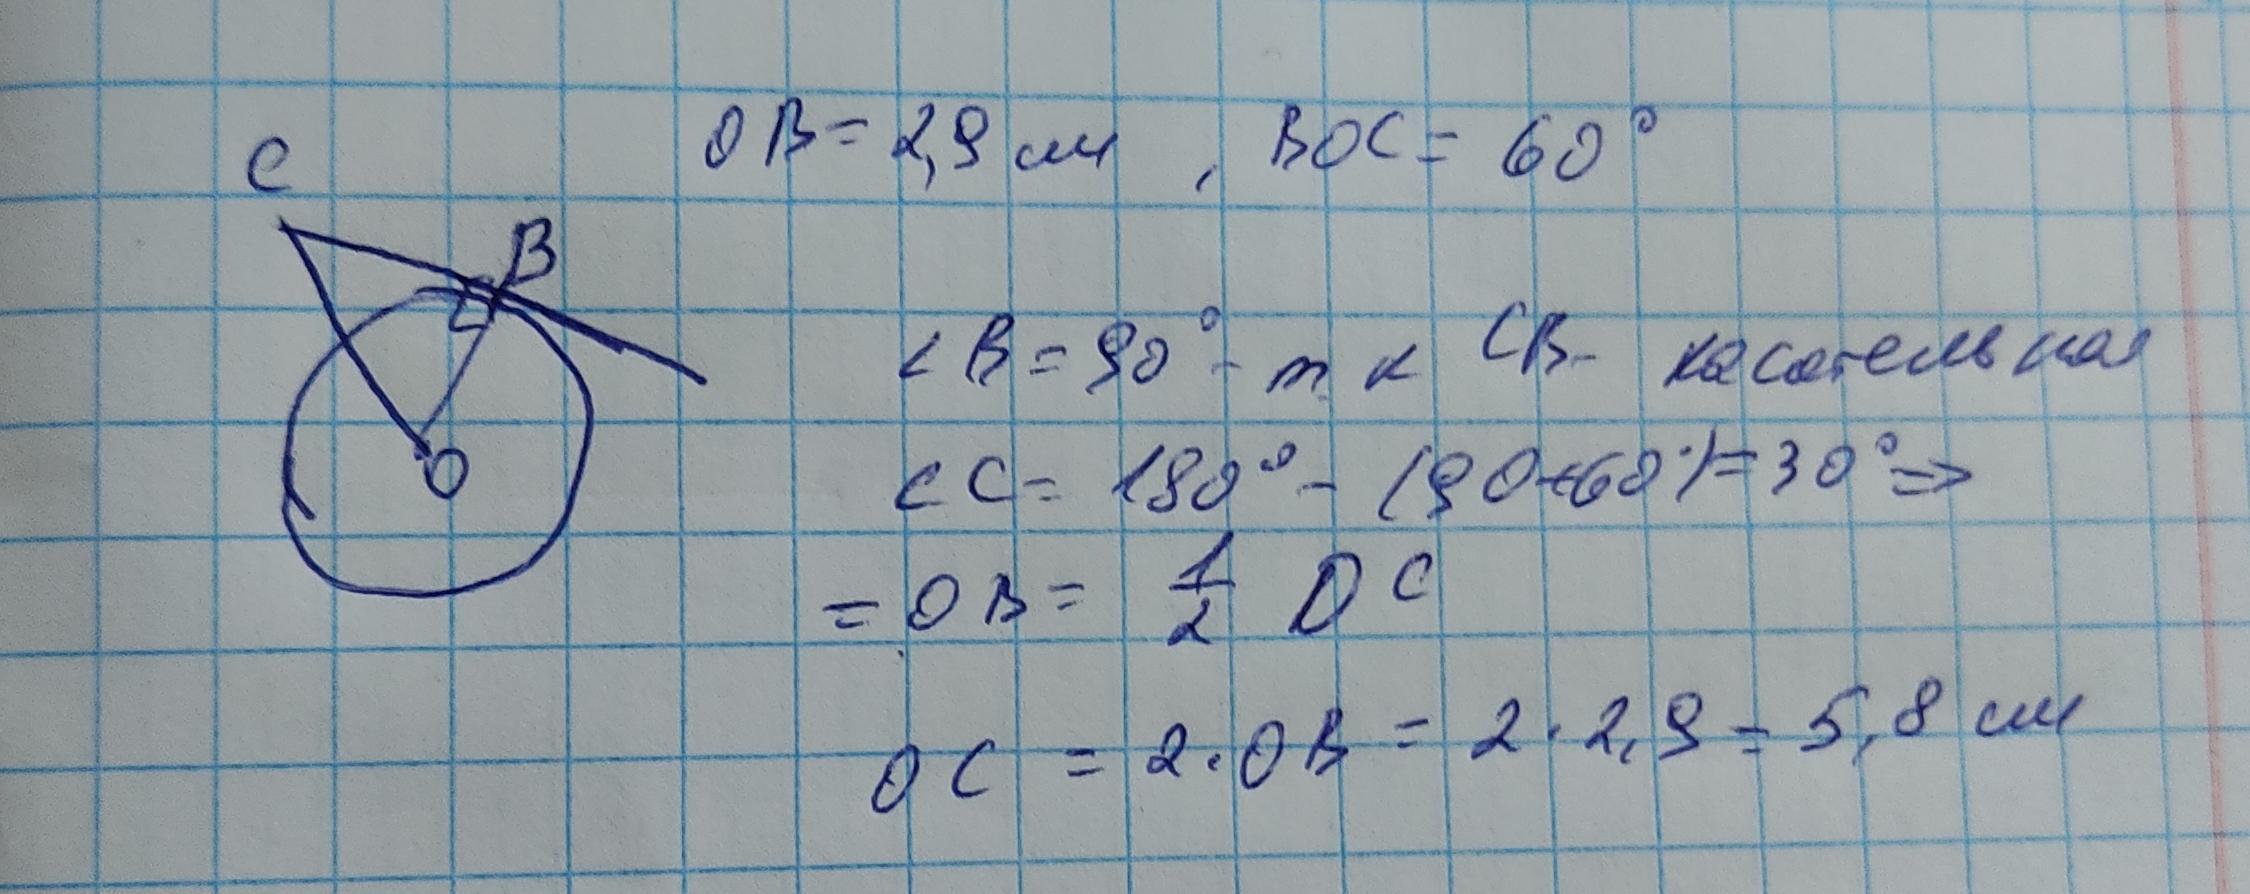 C
B
O
OB = 2,9 см , BOC = 60°
∠B = 90° - т к CB - касательная
∠C = 180° - (90+60°) = 30° =>
= OB = 1/2 OC
OC = 2 · OB = 2 · 2,9 = 5,8 см